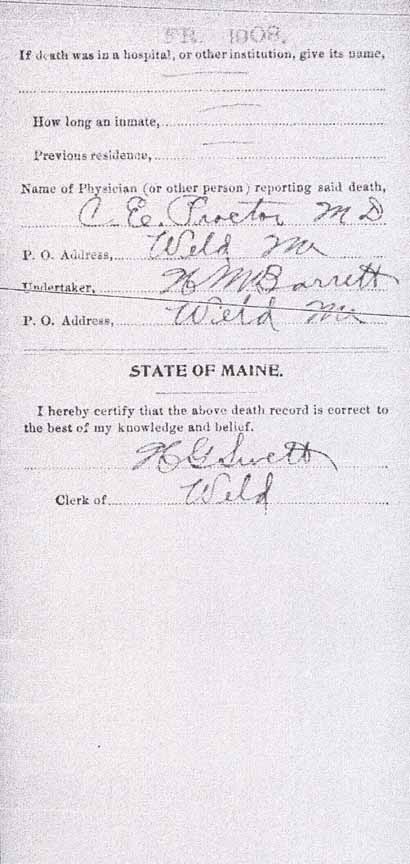 FR. 1908.
If death was in a hospital, or other institution, give its name,
How long an inmate,
Previous residence,
Name of Physician (or other person) reporting said death,
C. E. Proctor M D
P. O. Address, Weld Me
Undertaker, H M Barrett
P. O. Address, Weld Me
STATE OF MAINE.
I hereby certify that the above death record is correct to
the best of my knowledge and belief.
H G Swett
Clerk of Weld